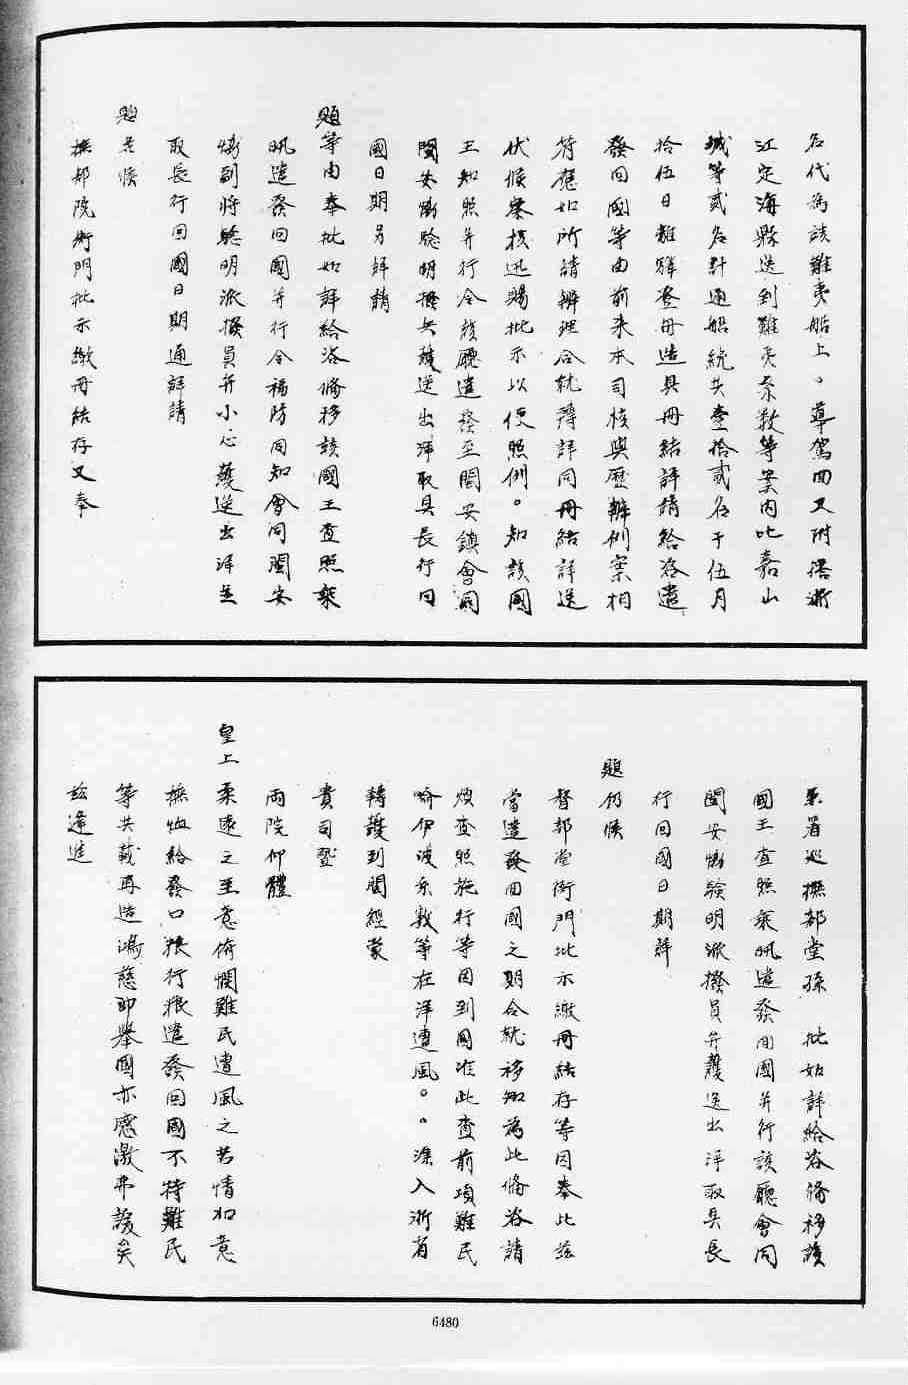 名代為該難夷船上、導駕回又附搭浙
江定海縣送到難夷系數等案內比嘉山
城等貳名計通船統共壹拾貳名于伍月
拾伍日離驛登舟造具冊結詳請給咨遣
發回國等由前来本司核與歷辦例案相
符應如所請辦理合就薄詳同冊結詳送
伏候察核迅賜批示以便照例。知該國
王知照并行令該廳遣發至閩安鎮會同
閩安協驗明撥兵護送出洋取具長行回
國日期另詳請
題等由奉批如詳給咨俻移該國王查照乘
帆遣發回國并行令福防同知會同閩安
協副將驗明派撥員弁小心護送出洋並
取長行回國日期通詳請
題並候
撫部院衙門批示繳冊結存又奉
兼署巡撫部堂孫 批如詳給咨俻移該
國王查照乘帆遣發回國并行該廳會同
閩安協驗明派撥員弁護送出洋取具長
行回國日期詳
題仍候
督部堂衙門批示繳冊結存等因奉此茲
當遣發回國之期合就移知為此俻咨請
煩查照施行等因到國准此查前項難民
喻伊波系數等在洋遭風。。漂入浙省
轉護到閩經蒙
貴司暨
兩院仰體
皇上柔遠之至意俯憫難民遭風之苦情加意
撫恤給發口粮行粮遣發回國不特難民
等共戴再造鴻慈即舉國亦感激弗諼矣
茲逢進
6480